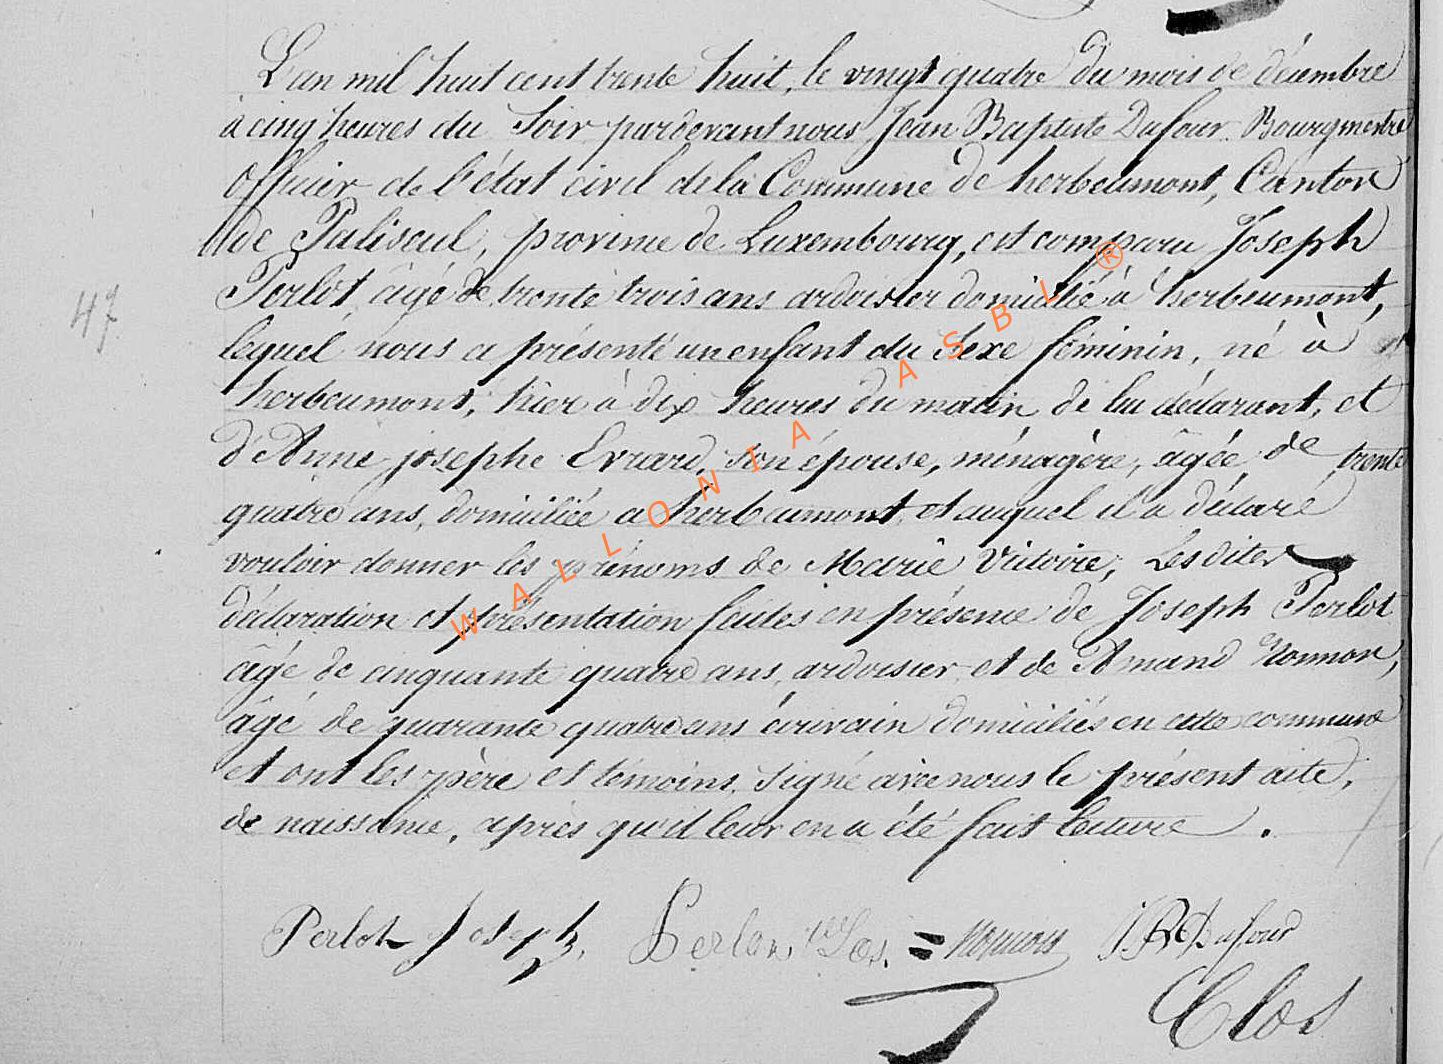 L'an mil huit cent trente huit, le vingt quatre du mois de décembre
à cinq heures du Soir pardevant nous Jean Baptiste Dufour Bourgmestre
officier de l'état civil de la Commune de herbeumont, Canton
de Paliseul, province de Luxembourg, est comparu Joseph
Perlot, âgé de trente trois ans ardoisier domicilié à herbeumont,
47
lequel nous a présenté un enfant du Sexe féminin, né à
herbeumont, hier à dix heures du matin de lui déclarant, et
d'Anne josephe Evrard, son épouse, ménagère, âgée de trente
quatre ans, domiciliée a herbeumont, et auquel il a déclaré
vouloir donner les prénoms de Marie Victoire, Lesdites
déclaration et présentation faites en présence de Joseph Perlot
âgé de cinquante quatre ans, ardoisier, et de Amand
âgé de quarante quatre ans écrivain domiciliés en cette commune
et ont les père et témoins signé avec nous le présent acte,
de naissance, après qu'il leur en a été fait lecture.
Perlot Joseph, Dufour
Clos
WALLONIA ASBL ®